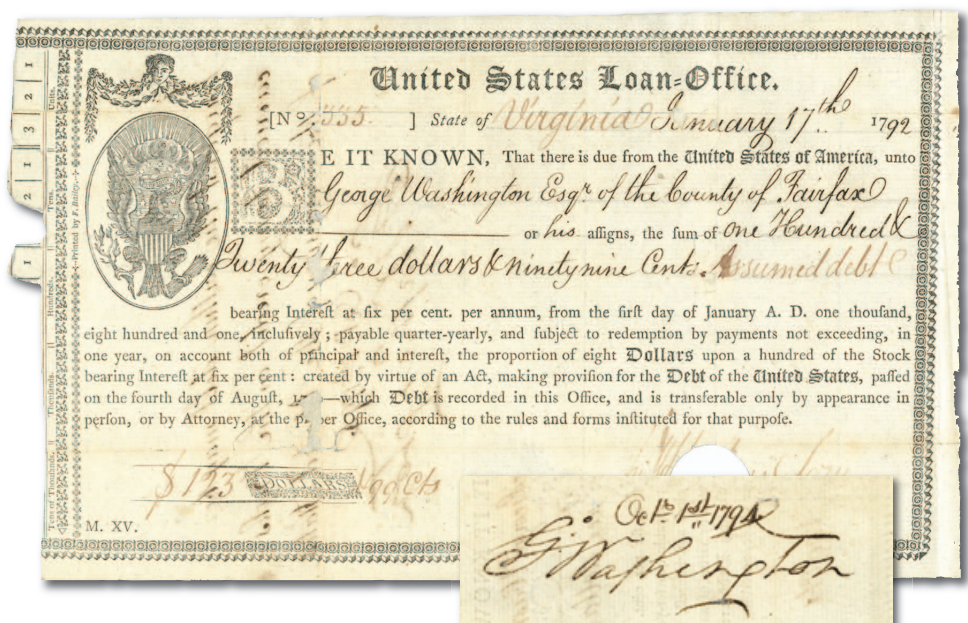 United States Loan-Office.
[No. 555. ] State of Virginia January 17th 1792
BE IT KNOWN, That there is due from the United States of America, unto
George Washington Esqr. of the County of Fairfax
or his aſſigns, the ſum of One Hundred &
Twenty three dollars & ninety nine Cents. Assumed debt
bearing Intereſt at ſix per cent. per annum, from the firſt day of January A. D. one thouſand,
eight hundred and one, incluſively ; payable quarter-yearly, and ſubject to redemption by payments not exceeding, in
one year, on account both of principal and intereſt, the proportion of eight Dollars upon a hundred of the Stock
bearing Intereſt at ſix per cent : created by virtue of an Act, making proviſion for the Debt of the United States, paſſed
on the fourth day of Auguſt, —which Debt is recorded in this Office, and is transferable only by appearance in
perſon, or by Attorney, at the proper Office, according to the rules and forms inſtituted for that purpoſe.
$ 123 DOLLARS 99 Cts
M. XV.
Octr. 1st 1794
G. Washington
Units.
Tens.
Hundreds.
Thouſands.
Tens of Thouſands.
Printed by F. Bailey.
1
2
3
1
2
1